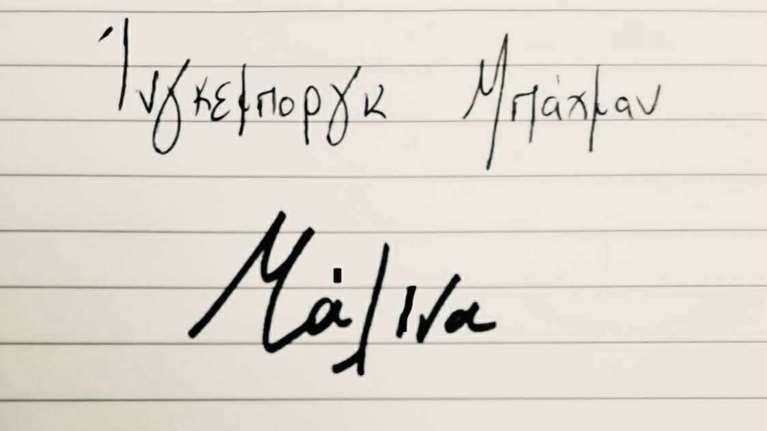 Ίνγκεμποργκ Μπάχμαν
Μάλινα